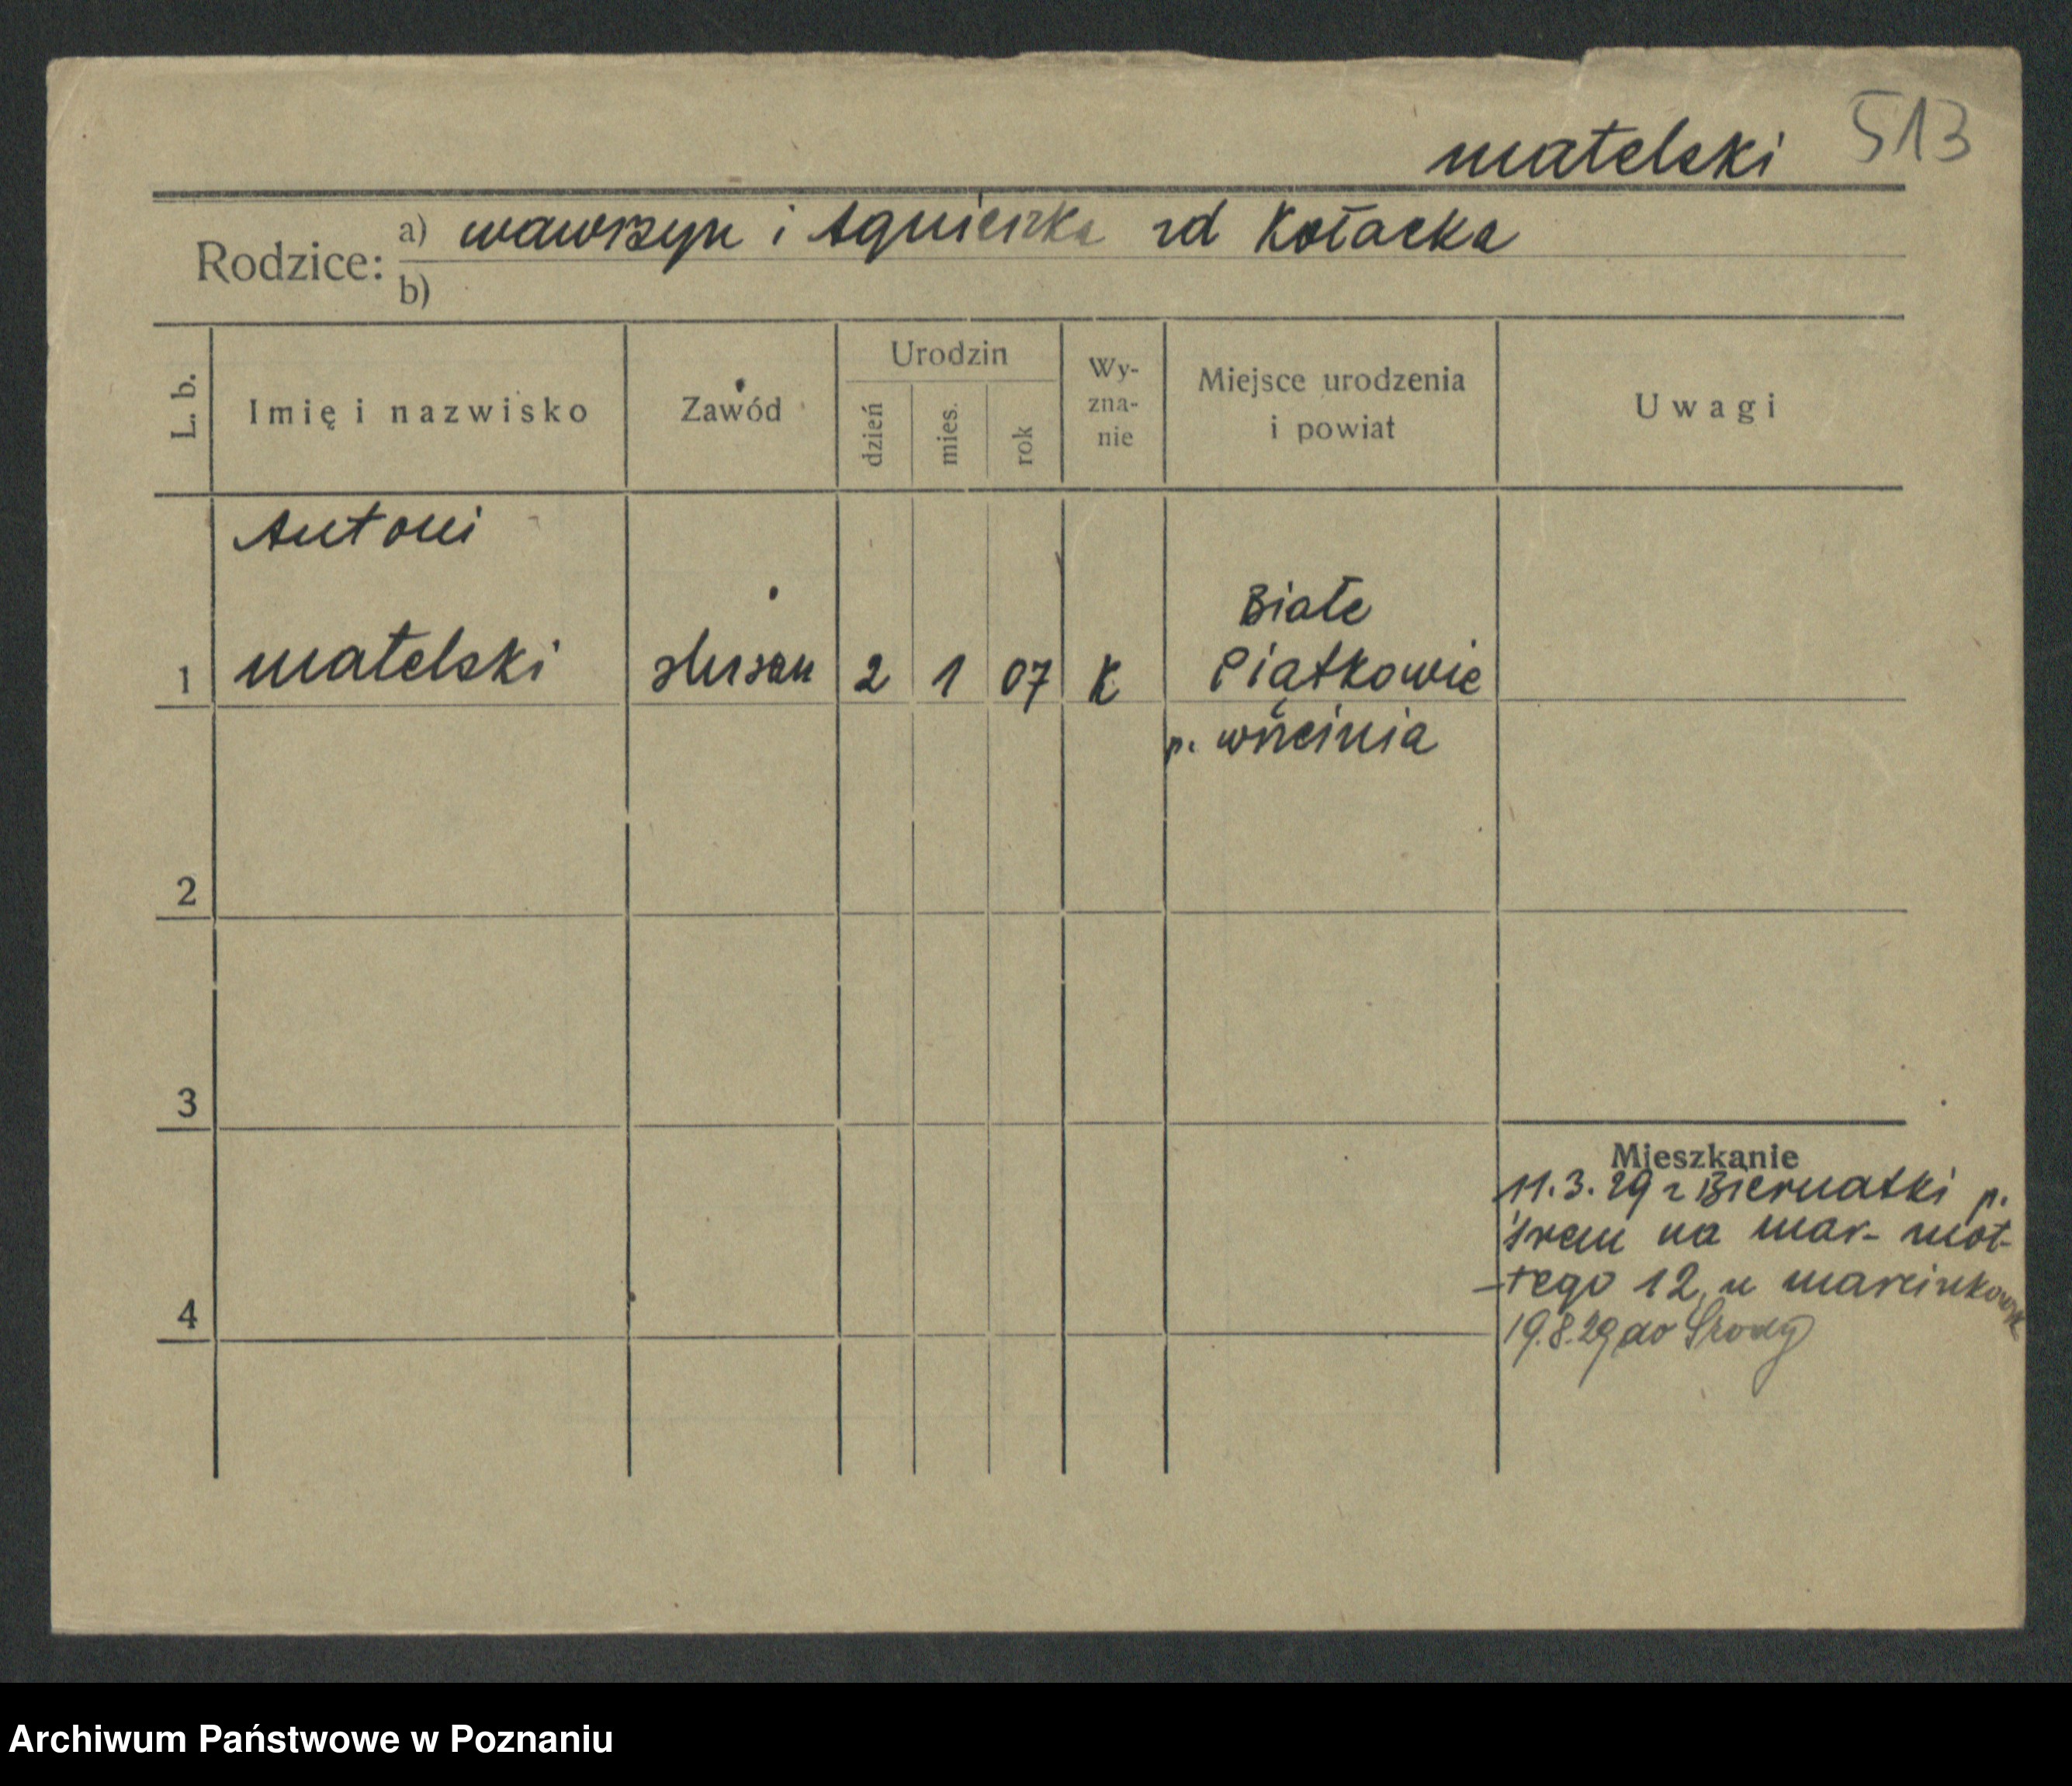 matelski 513
Rodzice: a) wawrzyn i Agnieszka zd Kołacka
b)
L. b. Imię i nazwisko Zawód Urodzin dzień mies. rok Wy-zna-nie Miejsce urodzenia i powiat Uwagi
Antoni
Białe
1 matelski ślusarz 2 1 07 K Piątkowie
p. września
2
3
Mieszkanie
11.3.29 z Biernatki p.
śrem na mar-
12, u marcinkowsk
4
19.8.29 do Środy
Archiwum Państwowe w Poznaniu